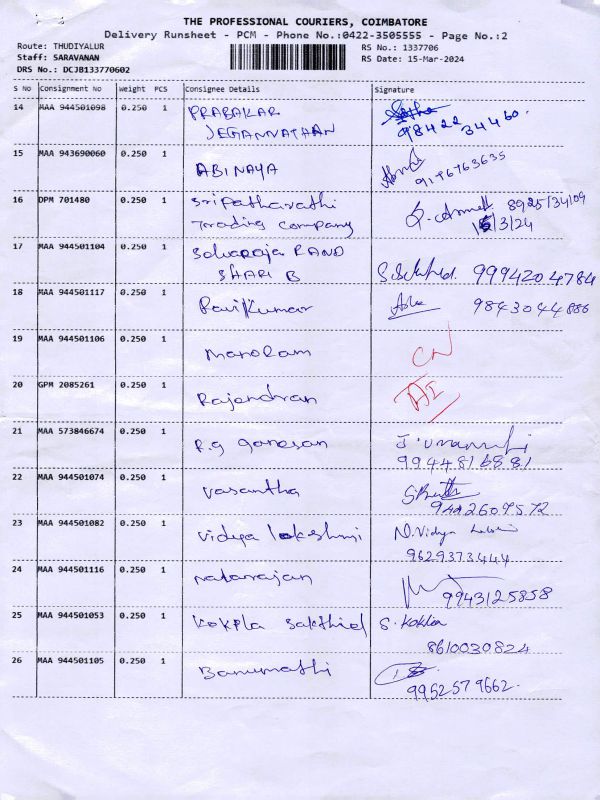 THE PROFESSIONAL COURIERS, COIMBATORE
Delivery Runsheet - PCM - Phone No.:0422-3505555 - Page No.:2
Route: THUDIYALUR
Staff: SARAVANAN
DRS No.: DCJB133770602
RS No.: 1337706
RS Date: 15-Mar-2024
S No Consignment No Weight PCS Consignee Details Signature
14 MAA 944501098 0.250 1 PRABAKAR
JEGANNATHAN 98422 34460
15 MAA 943690060 0.250 1 ABINAYA 9196763635
16 DPM 701480 0.250 1 Sripatharathi 8925134109
Trading Company 15/3/24
17 MAA 944501104 0.250 1 RAND
SHARI B 9994204784
18 MAA 944501117 0.250 1 RaviKumar 9843044886
19 MAA 944501106 0.250 1 Manolam CN
20 GPM 2085261 0.250 1 Rajendran
21 MAA 573846674 0.250 1 R.g ganesan
9944816881
22 MAA 944501074 0.250 1 Vasantha
9442607572
23 MAA 944501082 0.250 1 Vidya lakshmi N. Vidya
9629373444
24 MAA 944501116 0.250 1 Natarajan
9943125858
25 MAA 944501053 0.250 1 Kokpla Sakthiel S. Kokila
8610030824
26 MAA 944501105 0.250 1 Banumathi
9952579662.